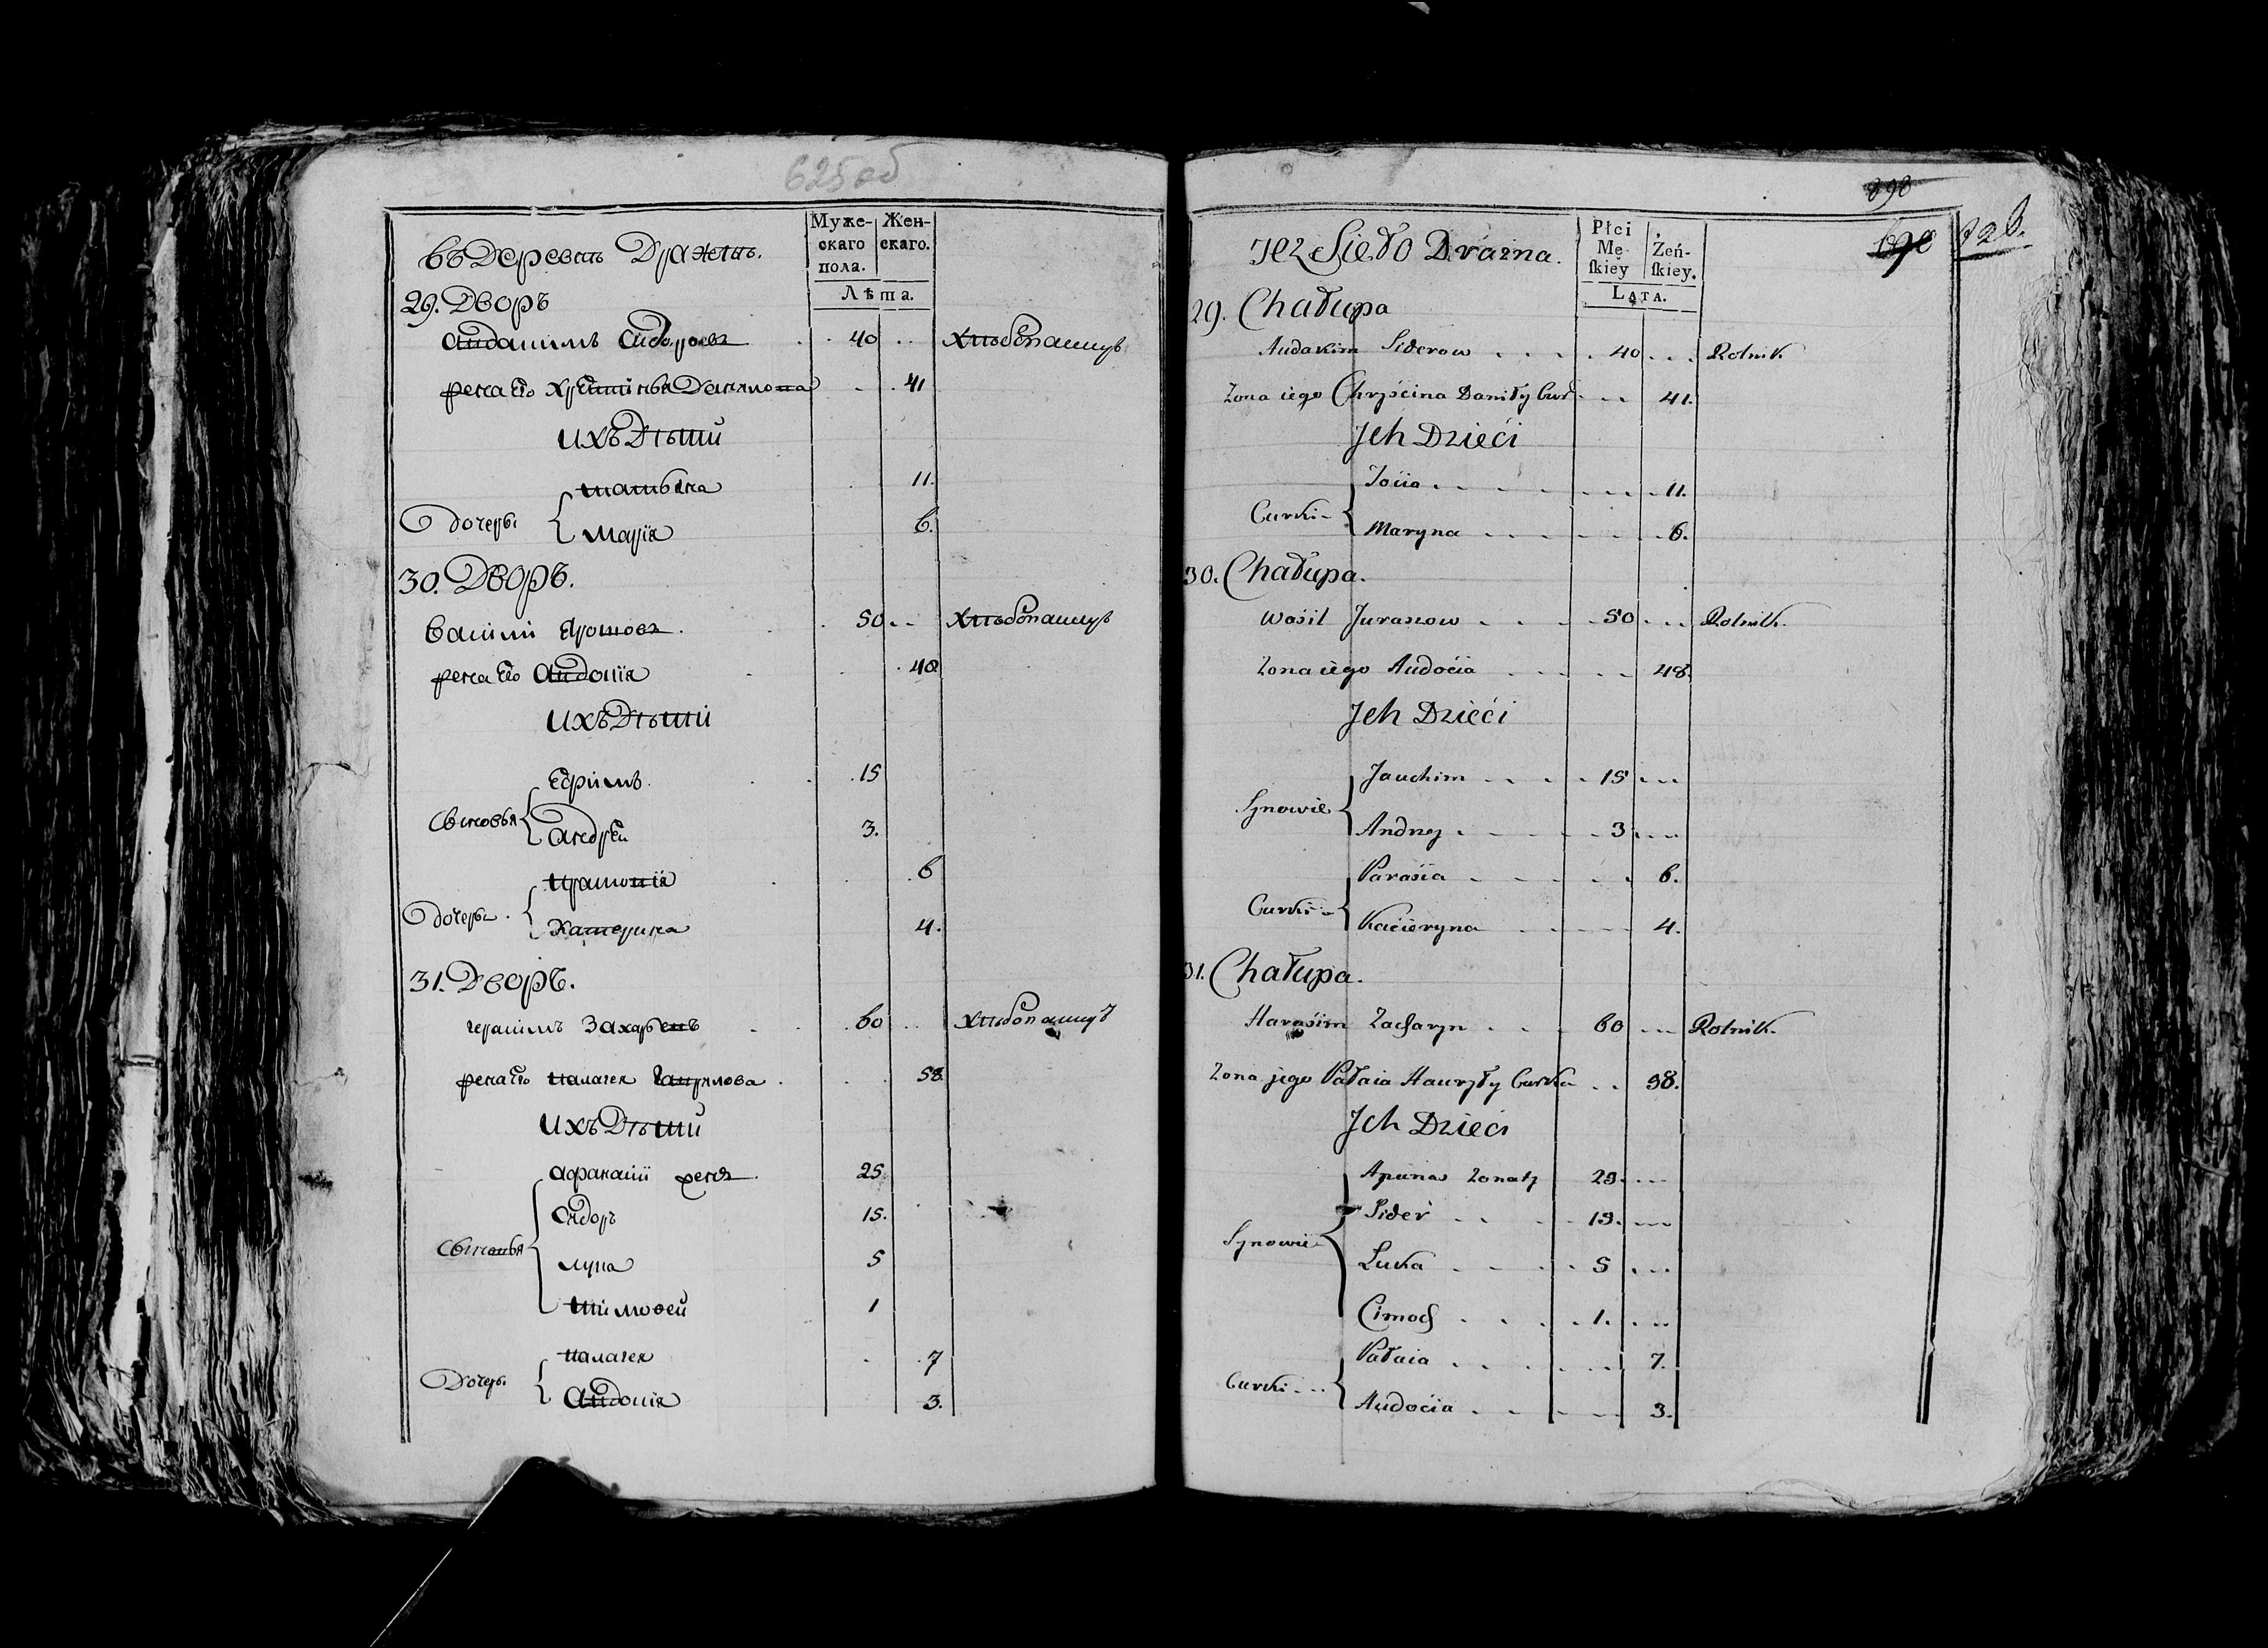 625об
Муже-
скаго
пола.
Жен-
скаго.
Лѣта.
въ Деревнѣ Дражнѣ.
29. Дворъ
Авдакимъ Сидоровъ 40 Хлѣбопашцъ
жена Его Христинья Данилова 41
ихъ Дѣти
Дочеры { татьяна 11.
Марія 6.
30. Дворъ.
Василій Ярошовъ. 50 Хлѣбопашцъ
жена Его Авдотія 48
ихъ Дѣти
Сыновья { Ефимъ. 15
Андрей 3.
Дочеры. { 6
Катерина 4.
31. Дворъ.
герасимъ Захарьевъ 60 Хлѣбопашцъ
жена Его палагея Гаврилова. 58
ихъ Дѣти
Сыновья { афанасій женатъ. 25
Сидоръ 15.
лука 5
тимофей 1
Дочеры { палагея 7
Авдотія 3.
890
690
Płci
Mę-
skiey
Żeń-
skiey.
LATA.
Jez Sieło Drażna.
29. Chałupa
Audakim Siderow 40 Rolnik
Zona iego Chryścina Daniły Cur 41.
Jch Dzieći
Curki { Tacia 11.
Maryna 6.
30. Chałupa.
Wasil Juraszow 50 Rolnik.
Zona iego Audocia 48.
Jch Dzieći
Synowie { Jauchim 15
Andrzej 3
Curki { Parasia 6.
Kacieryna 4.
31. Chałupa.
Harasim Zacharyn 60 Rolnik.
Zona jego Pałaia Hauryły Curka 58.
Jch Dzieći
Synowie { Apanas Zonaty 25.
Sider 15.
Łuka 5
Cimoch 1.
Curki { Pałaia 7.
Audocia 3.